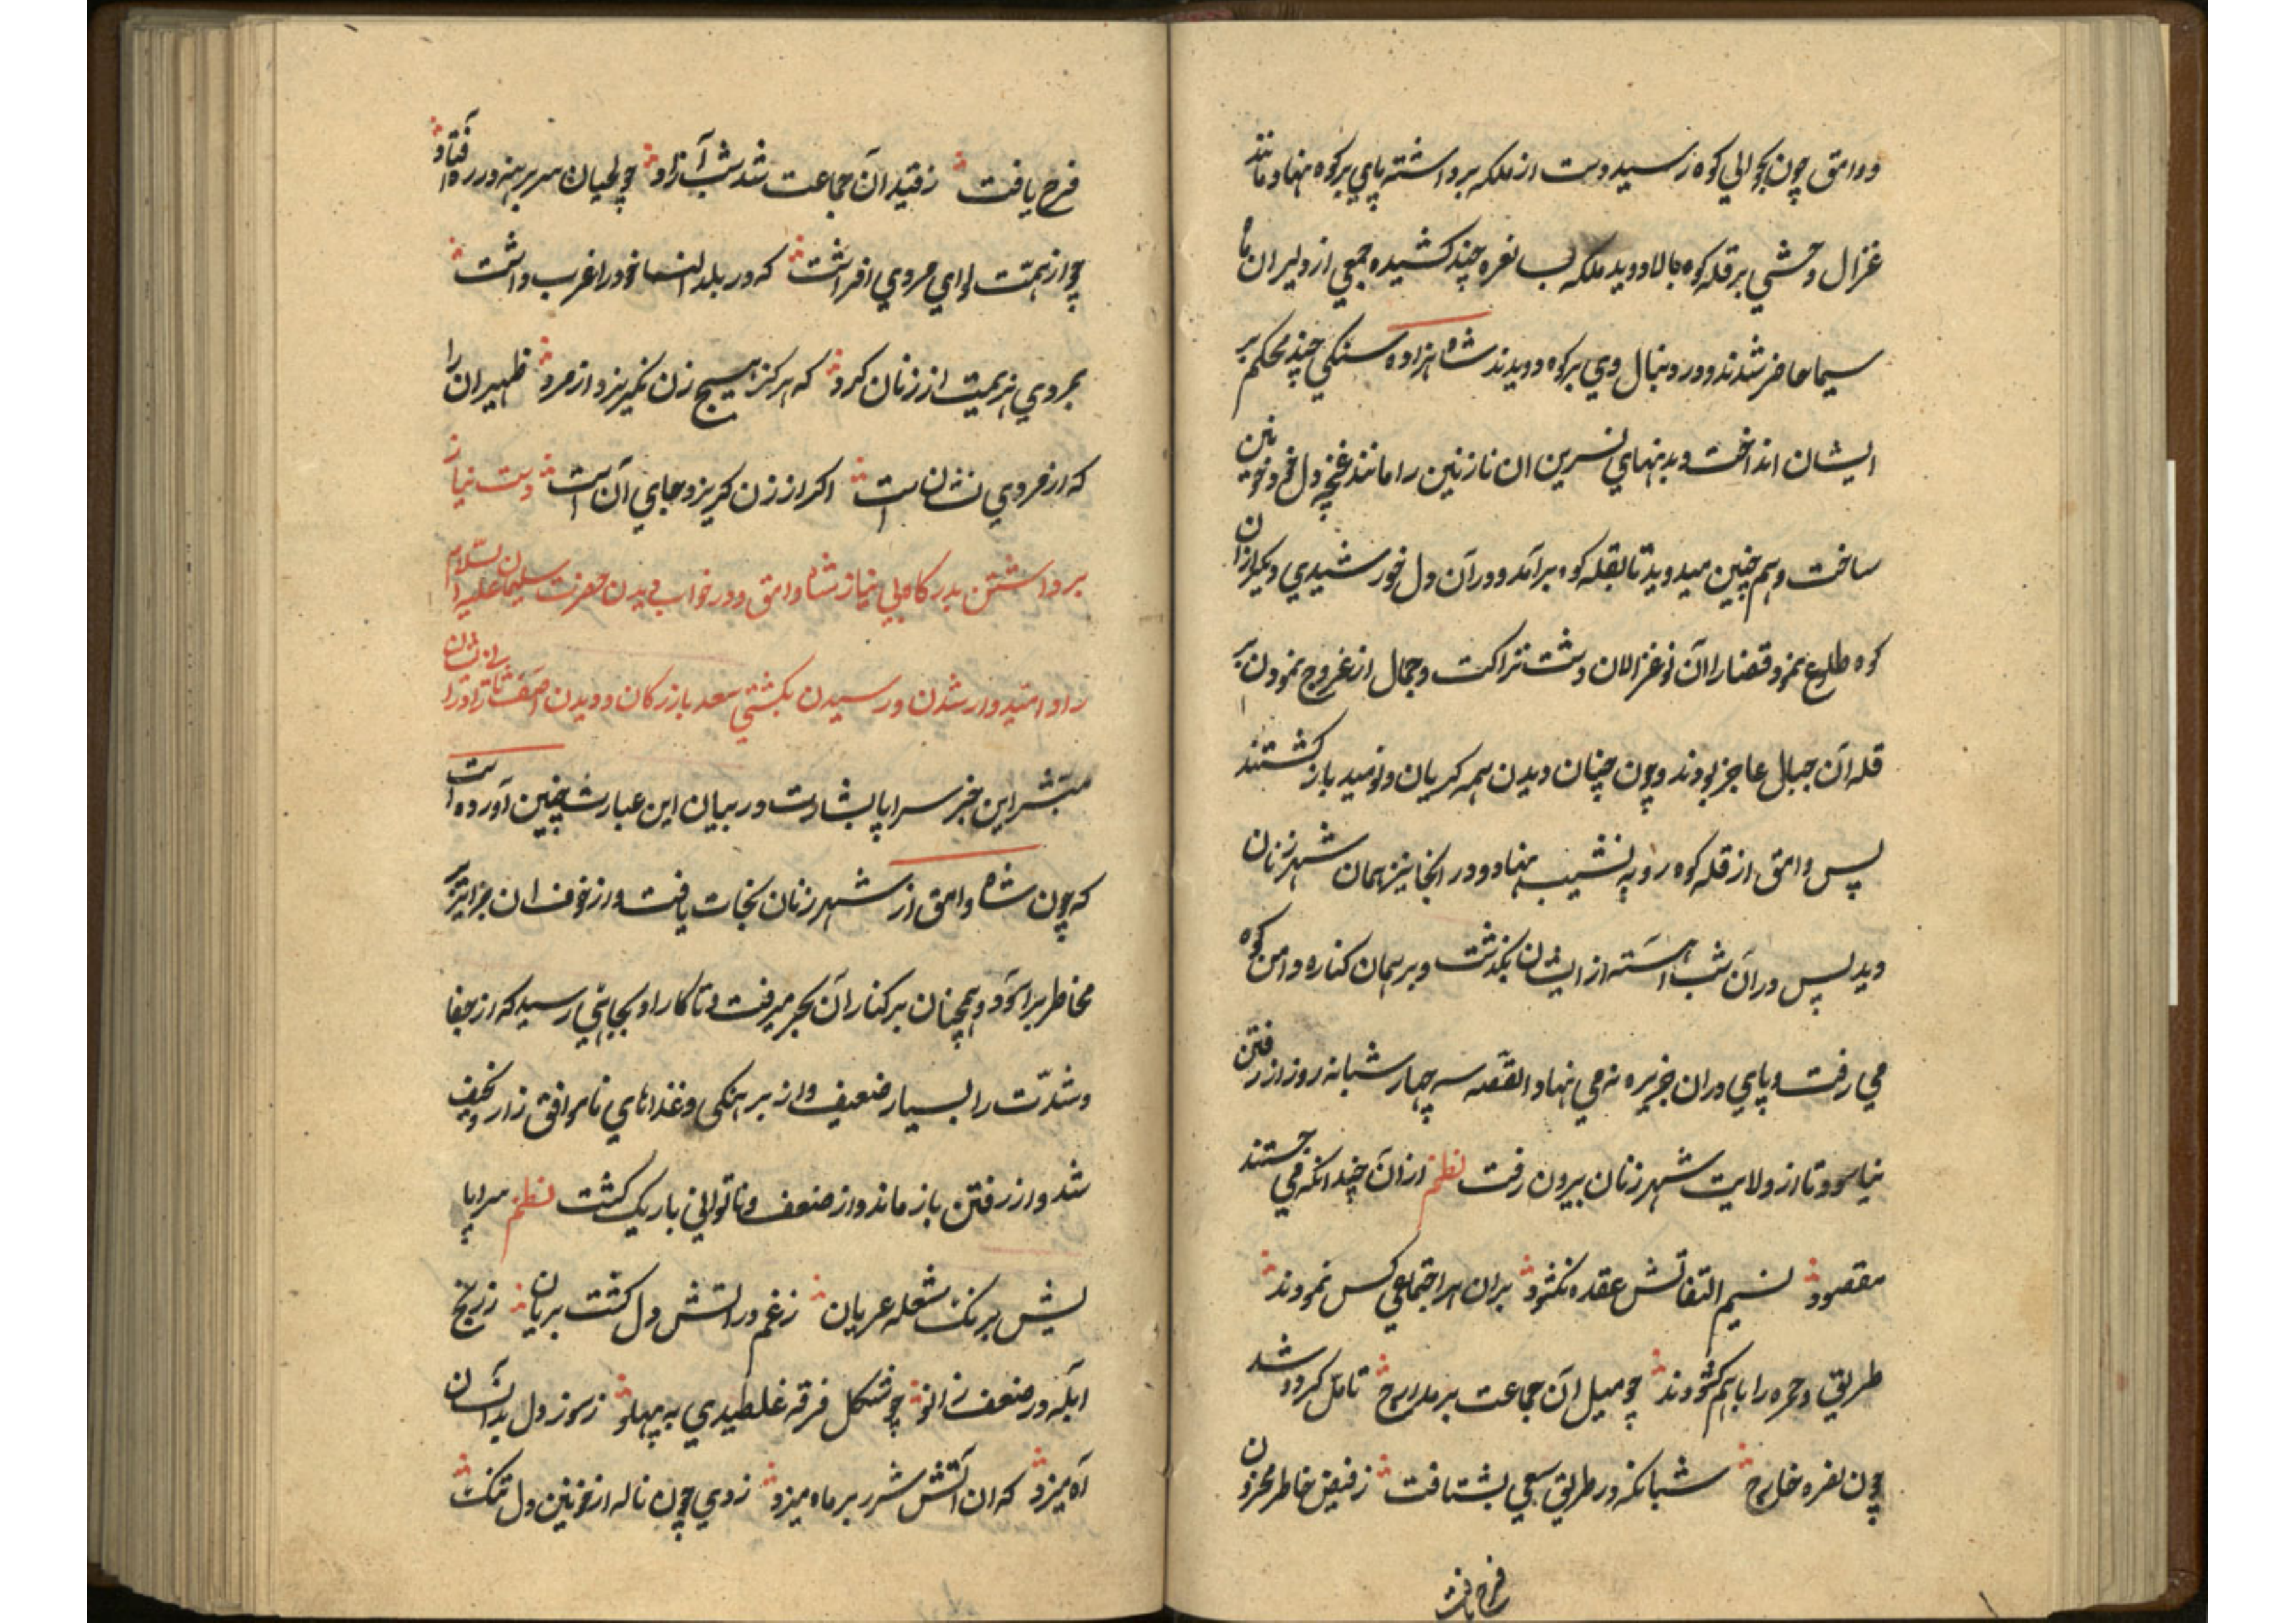 و وامق چون بحوالی کوه رسید دست از ملکه برداشته پای بر کوه نهاد و مانند
غزال وحشی بر قله کوه بالا دوید ملکه لب نعره چند کشیده جمعی از دلیران
سیما حاضر شدند و در دنبال وی بر کوه دویدند شاهزاده سنکی چند محکم بر
ایشان انداخت و بدنهای نسرین ان نازنین را مانند غنچه دل خونین
ساخت و هم چنین میدوید تا بقله کوه برآمد و در آن دل خورشیدی دیکر از ان
کوه طلوع نمود قضا را آن نو غزالان دشت نزاکت و جمال از عروج نمودن بر
قله آن جبال عاجز بودند و چون چنان دیدن همه کریان و نومید باز کشتند
پس وامق از قله کوه رو به نشیب نهاد و در انجا نیز همان شهر زنان
دید پس در آن شب آهسته از ایشان بکذشت و بر همان کناره دامن کوه
می رفت و پای در ان جزیره نه می نهاد القصه سه چهار شبانه روز از رفتن
نیاسود تا از ولایت شهر زنان بیرون رفت نظم از آن چندانکه می جستند
مقصود نسیم التفاتش عقده نکشود بران هر اجتماعی کس نمودند
طریق وحمره را باهم کشودند چو میل آن جماعت بر مدارج تامل کرد و شد
چون نفره خارج شبانکه در طریق سعی بشتافت ز فیض خاطر محزون
فرح یافت
فرح یافت ز قید آن جماعت شد شب آزاد چو لحیان سر برهنه در ره افتاد
چو از همت لوای مردی افراشت که در بلد النسا خود را غرب داشت
بمردی هزیمت از زنان کرد که هرکز هیچ زن نکریزد از مرد ظهیر ان را
که از مردی نشانست اکر از زن کریزد جای آن است دست نیاز
برداشتن بدرکاه بی نیاز شاه وامق و در خواب دیدن حضرت سلیمان علیه السلام
را و امیدوار شدن و رسیدن بکشتی سعد بازرکان و دیدن
مبشر این خبر سراپا بشارت در بیان این عبارت چنین آورده است
که چون شاه وامق از شهر زنان نجات یافت و از خوف ان جزایر نیز
مخاطر براسود و همچنان بر کنار آن بحر میرفت و تا کار او بجایی رسید که از جفا
و شدّت راه بسیار ضعیف و از برهنکی و غذاهای ناموافق زار و نحیف
شد و از رفتن باز ماند و از ضعف و ناتوانی باریک کشت نظم سراپا
یش برنک شعله عریان ز غم در آتش دل کشت بریان ز رنج
ابله در ضعف زانو چو شکل قرقه غلطیدی به پهلو ز سوز دل بدانسان
آه میزد که ان آتش شرر بر ماه میزد زدی چون ناله از خونین دل تنک